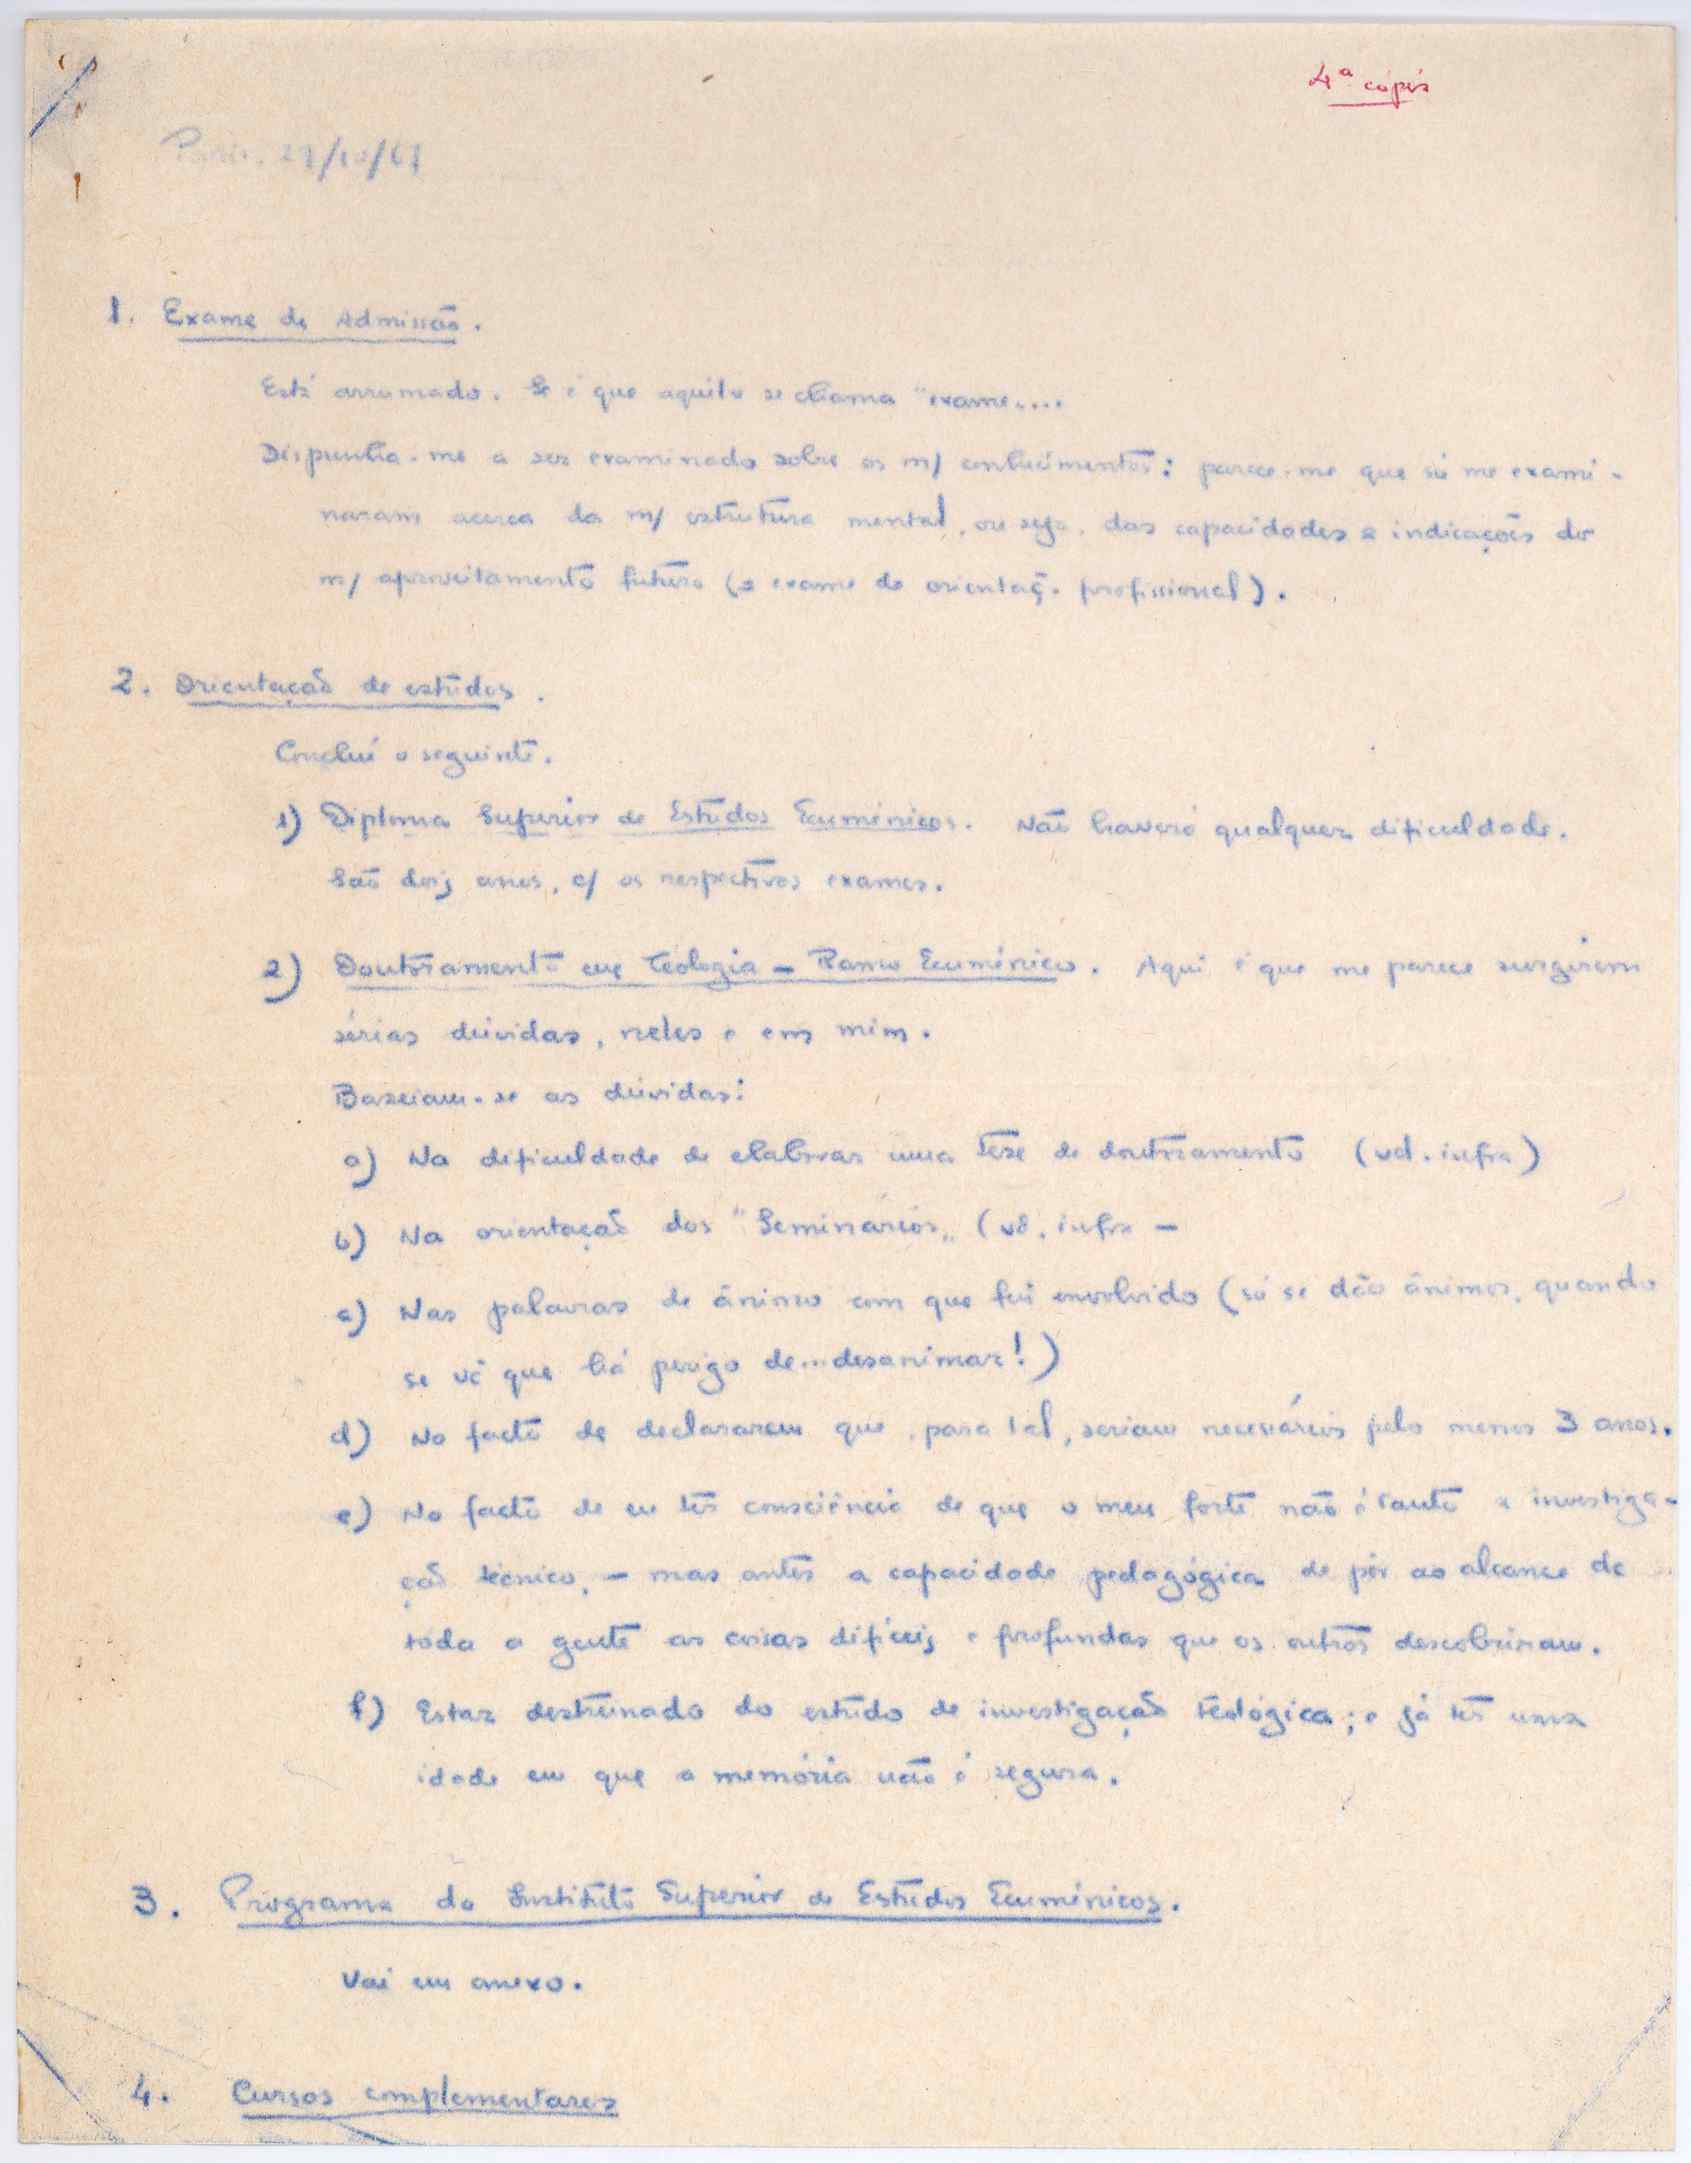 4ª cópia
Paris, 27/10/67
1. Exame de Admissão.
Está arrumado. Se é que aquilo se chama "exame....
Dispunha-me a ser examinado sobre os m/ conhecimentos: parece-me que só me exami-
naram acerca da m/ estrutura mental, ou seja, das capacidades e indicações do
m/ aproveitamento futuro (= exame de orientaç. profissional).
2. Orientação de estudos.
Concluí o seguinte.
1) Diploma Superior de Estudos Ecuménicos. Não haverá qualquer dificuldade.
São dois anos, c/ os respectivos exames.
2) Doutoramento em Teologia - Ramo Ecuménico. Aqui é que me parece surgirem
sérias dúvidas, neles e em mim.
Baseiam-se as dúvidas:
a) Na dificuldade de elaborar uma tese de doutoramento (vd. infra)
b) Na orientação dos "Seminários„ (vd. infra -
c) Nas palavras de ânimo com que fui envolvido (só se dão ânimos, quando
se vê que há perigo de...desanimar!)
d) No facto de declararem que, para tal, seriam necessários pelo menos 3 anos.
e) No facto de eu ter consciência de que o meu forte não é tanto a investiga-
ção técnica, - mas antes a capacidade pedagógica de pôr ao alcance de
toda a gente as coisas difíceis e profundas que os outros descobriram.
f) Estar destreinado do estudo de investigação teológica; e já ter uma
idade em que a memória não é segura.
3. Programa do Instituto Superior de Estudos Ecuménicos.
Vai em anexo.
4. Cursos complementares